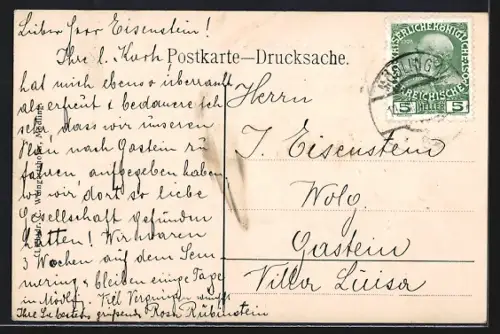 Lieber Herr Eisenstein!
Ihre l. Karte
Postkarte—Drucksache.
hat mich ebenso überrascht
als erfreut & bedauere ich
sehr, dass wir unseren
Plan nach Gastein zu
fahren aufgegeben haben
wo wir dort so liebe
Gesellschaft gefunden
hätten! Wir waren
3 Wochen auf dem Sem-
mering & bleiben einige Tage
in Mödlg. Viel Vergnügen wünscht
Ihre Sie bestens grüßende Rosa Rubinstein
Herrn
I. Eisenstein
Wolg.
Gastein
Villa Luisa
KAISERLICHE KÖNIGLICHE
ÖSTERREICHISCHE
5 HELLER 5
MÖDLING